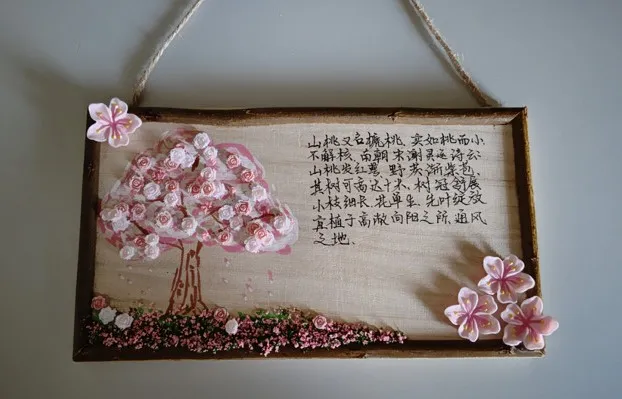 山桃又名榹桃、实如桃而小
不解核、南朝宋谢灵运诗云：
山桃发红萼、野蕨渐紫苞、
其树可高达十米、树冠舒展
小枝细长、花单生、先叶绽放
宜植于高敞向阳之所、通风
之地、